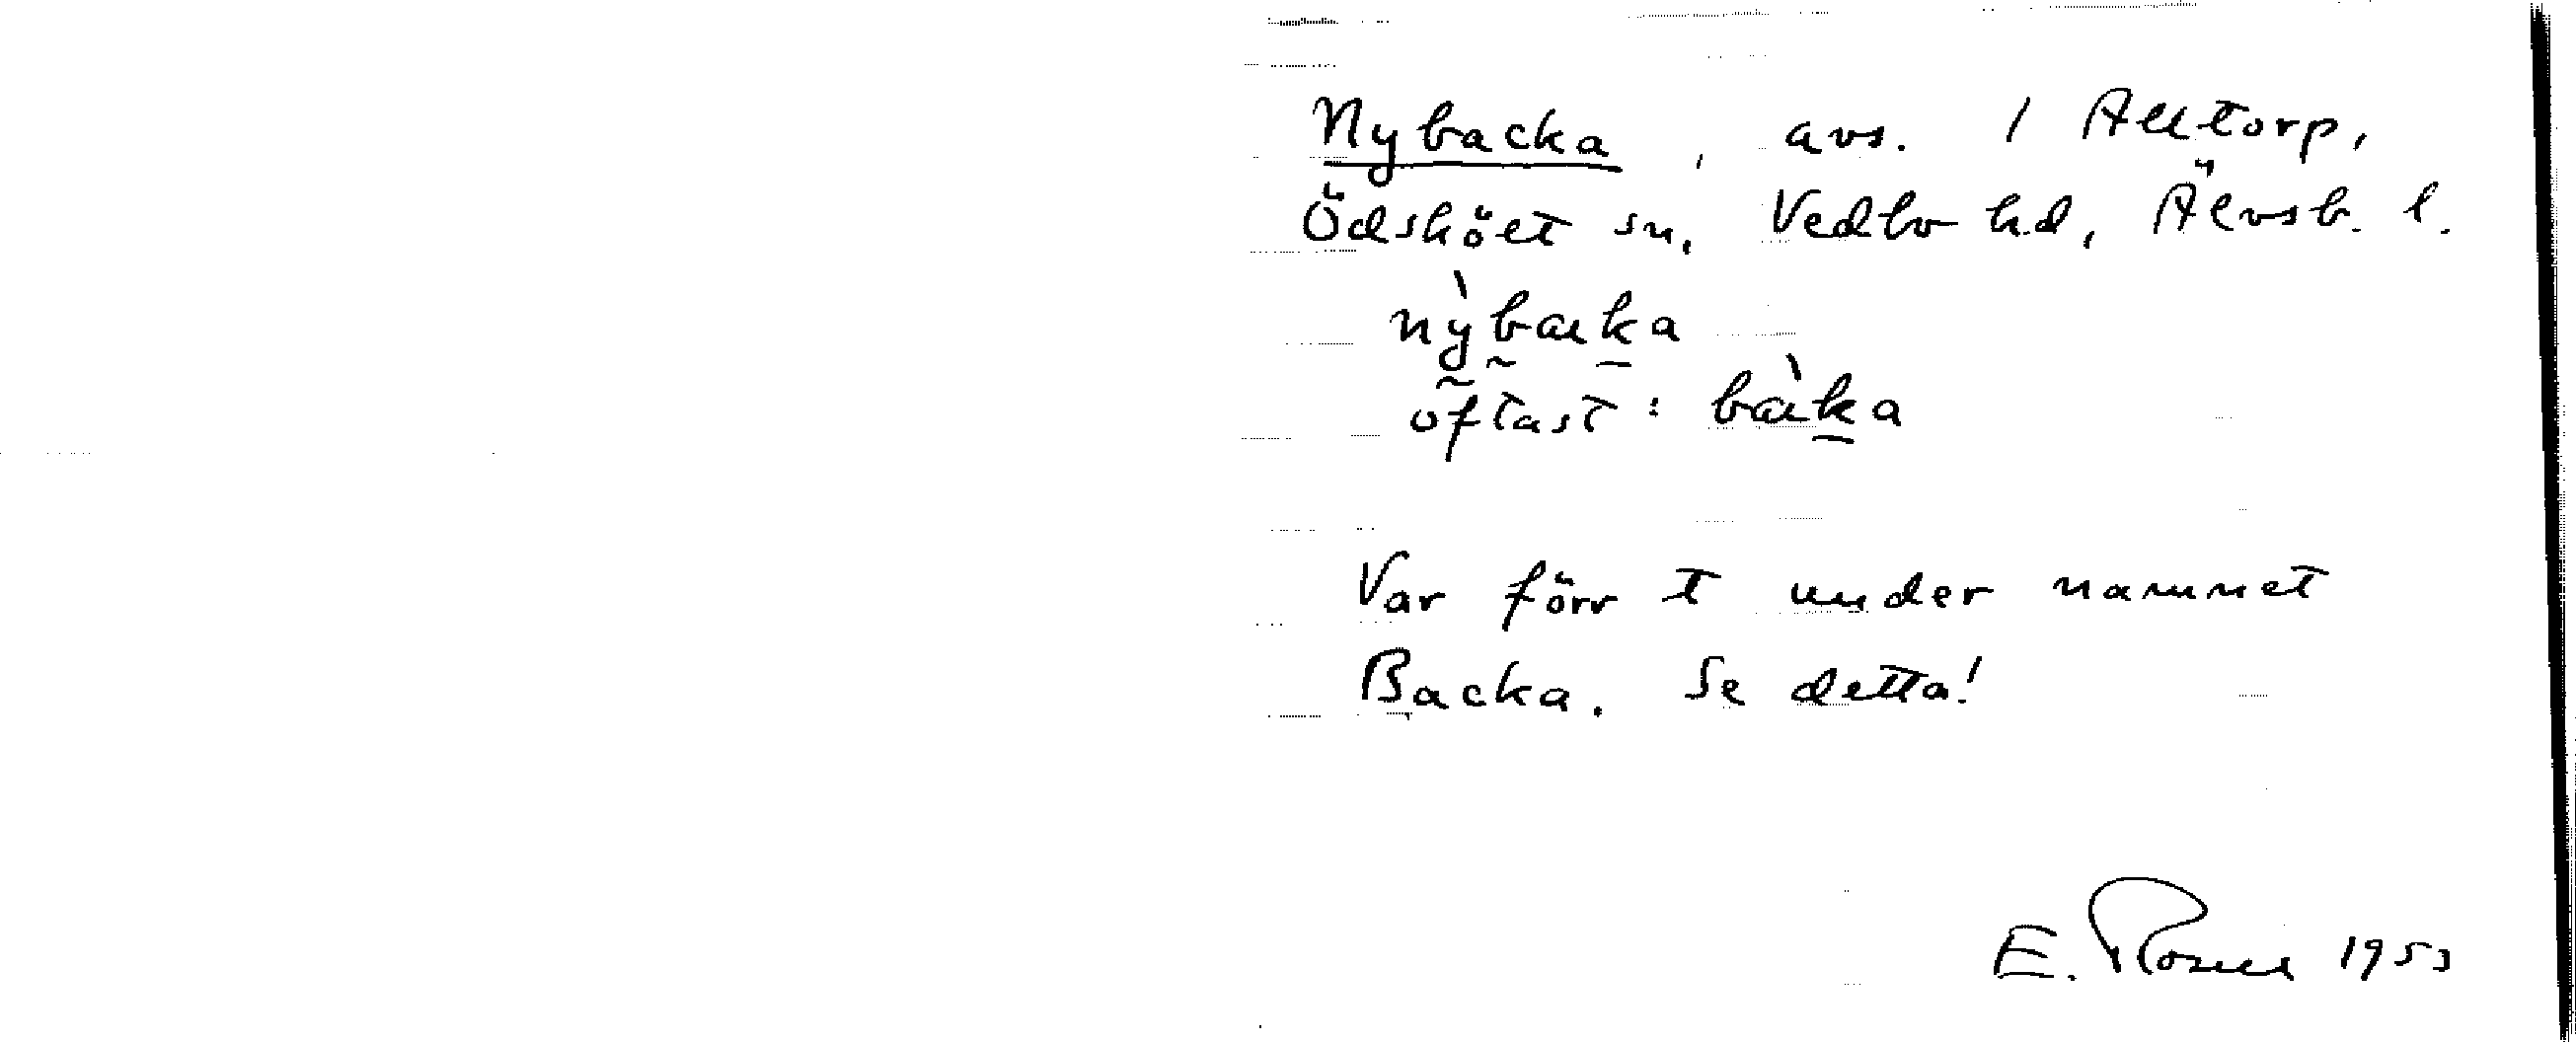 Nybacka, avs. / Alltorp,
Ödsköet sn, Vedbo hd, Älvsb. l.
nỳbaka
oftast: bàka
Var förr t under namnet
Backa. Se detta!
E. Rosell 1953